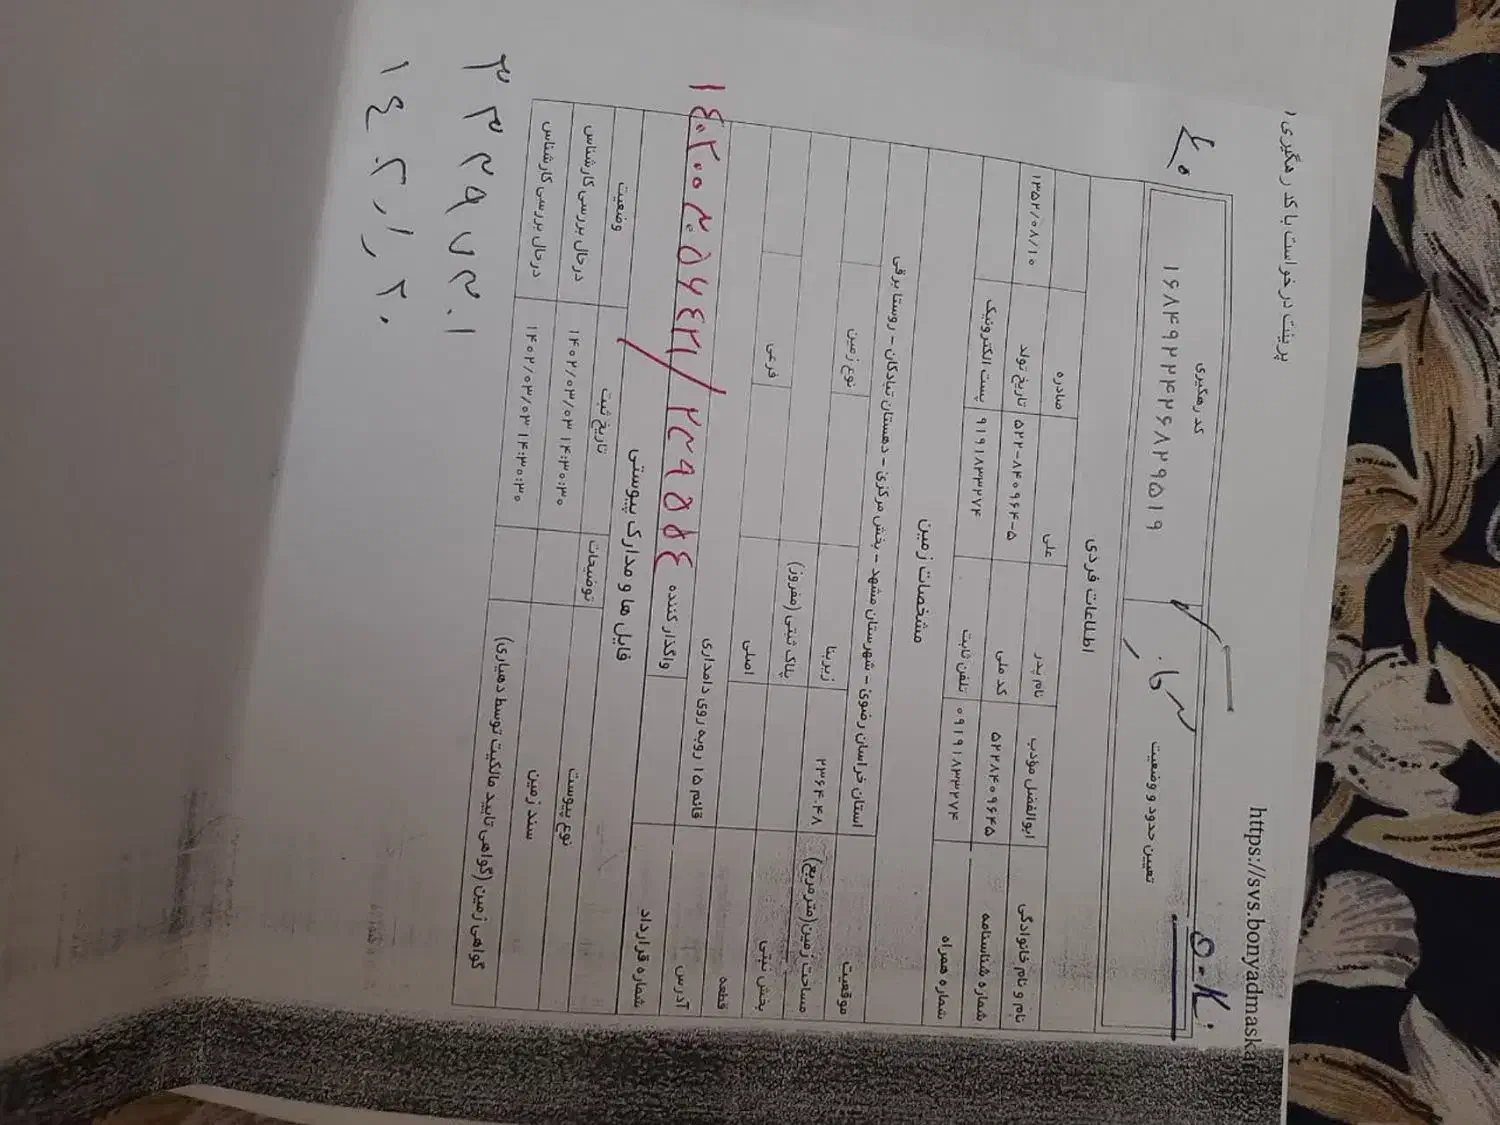 پرینت درخواست با کد رهگیری ۱
https://svs.bonyadmaska
۵-۲.
کد رهگیری
۱۶۸۴۹۲۲۴۲۶۸۲۹۵۱۹
تعیین حدود و وضعیت
اطلاعات فردی
نام و نام خانوادگی ابوالفضل مؤدب نام پدر علی صادره
شماره شناسنامه ۵۲۲۸۴۰۹۶۴۵ کد ملی ۵۲۲-۸۴۰۹۶۴-۵ تاریخ تولد ۱۳۵۲/۰۸/۱۰
شماره همراه ۰۹۱۹۱۸۳۳۲۷۴ تلفن ثابت ۹۱۹۱۸۳۳۲۷۴ پست الکترونیک
مشخصات زمین
موقعیت استان خراسان رضوی - شهرستان مشهد - بخش مرکزی - دهستان تبادکان - روستا برقی
مساحت زمین(مترمربع) ۲۳۶۴.۴۸ زیربنا نوع زمین
بخش ثبتی پلاک ثبتی (مفروز) اصلی فرعی
قطعه
آدرس قائم ۱۵ روبه روی دامداری
شماره قرارداد واگذار کننده
۱۴۰۲۰۰۲۰۵۶۴۳۱/۲۳۹۵۵۴
فایل ها و مدارک پیوستی
نوع پیوست توضیحات تاریخ ثبت وضعیت
سند زمین ۱۴۰۲/۰۳/۰۳ ۱۴:۳۰:۳۰ درحال بررسی کارشناس
گواهی زمین (گواهی تایید مالکیت توسط دهیاری) ۱۴۰۲/۰۳/۰۳ ۱۴:۳۰:۳۰ درحال بررسی کارشناس
۳۳۲۹۷۳۰۱
۱۴۰۳/۱/۲۰